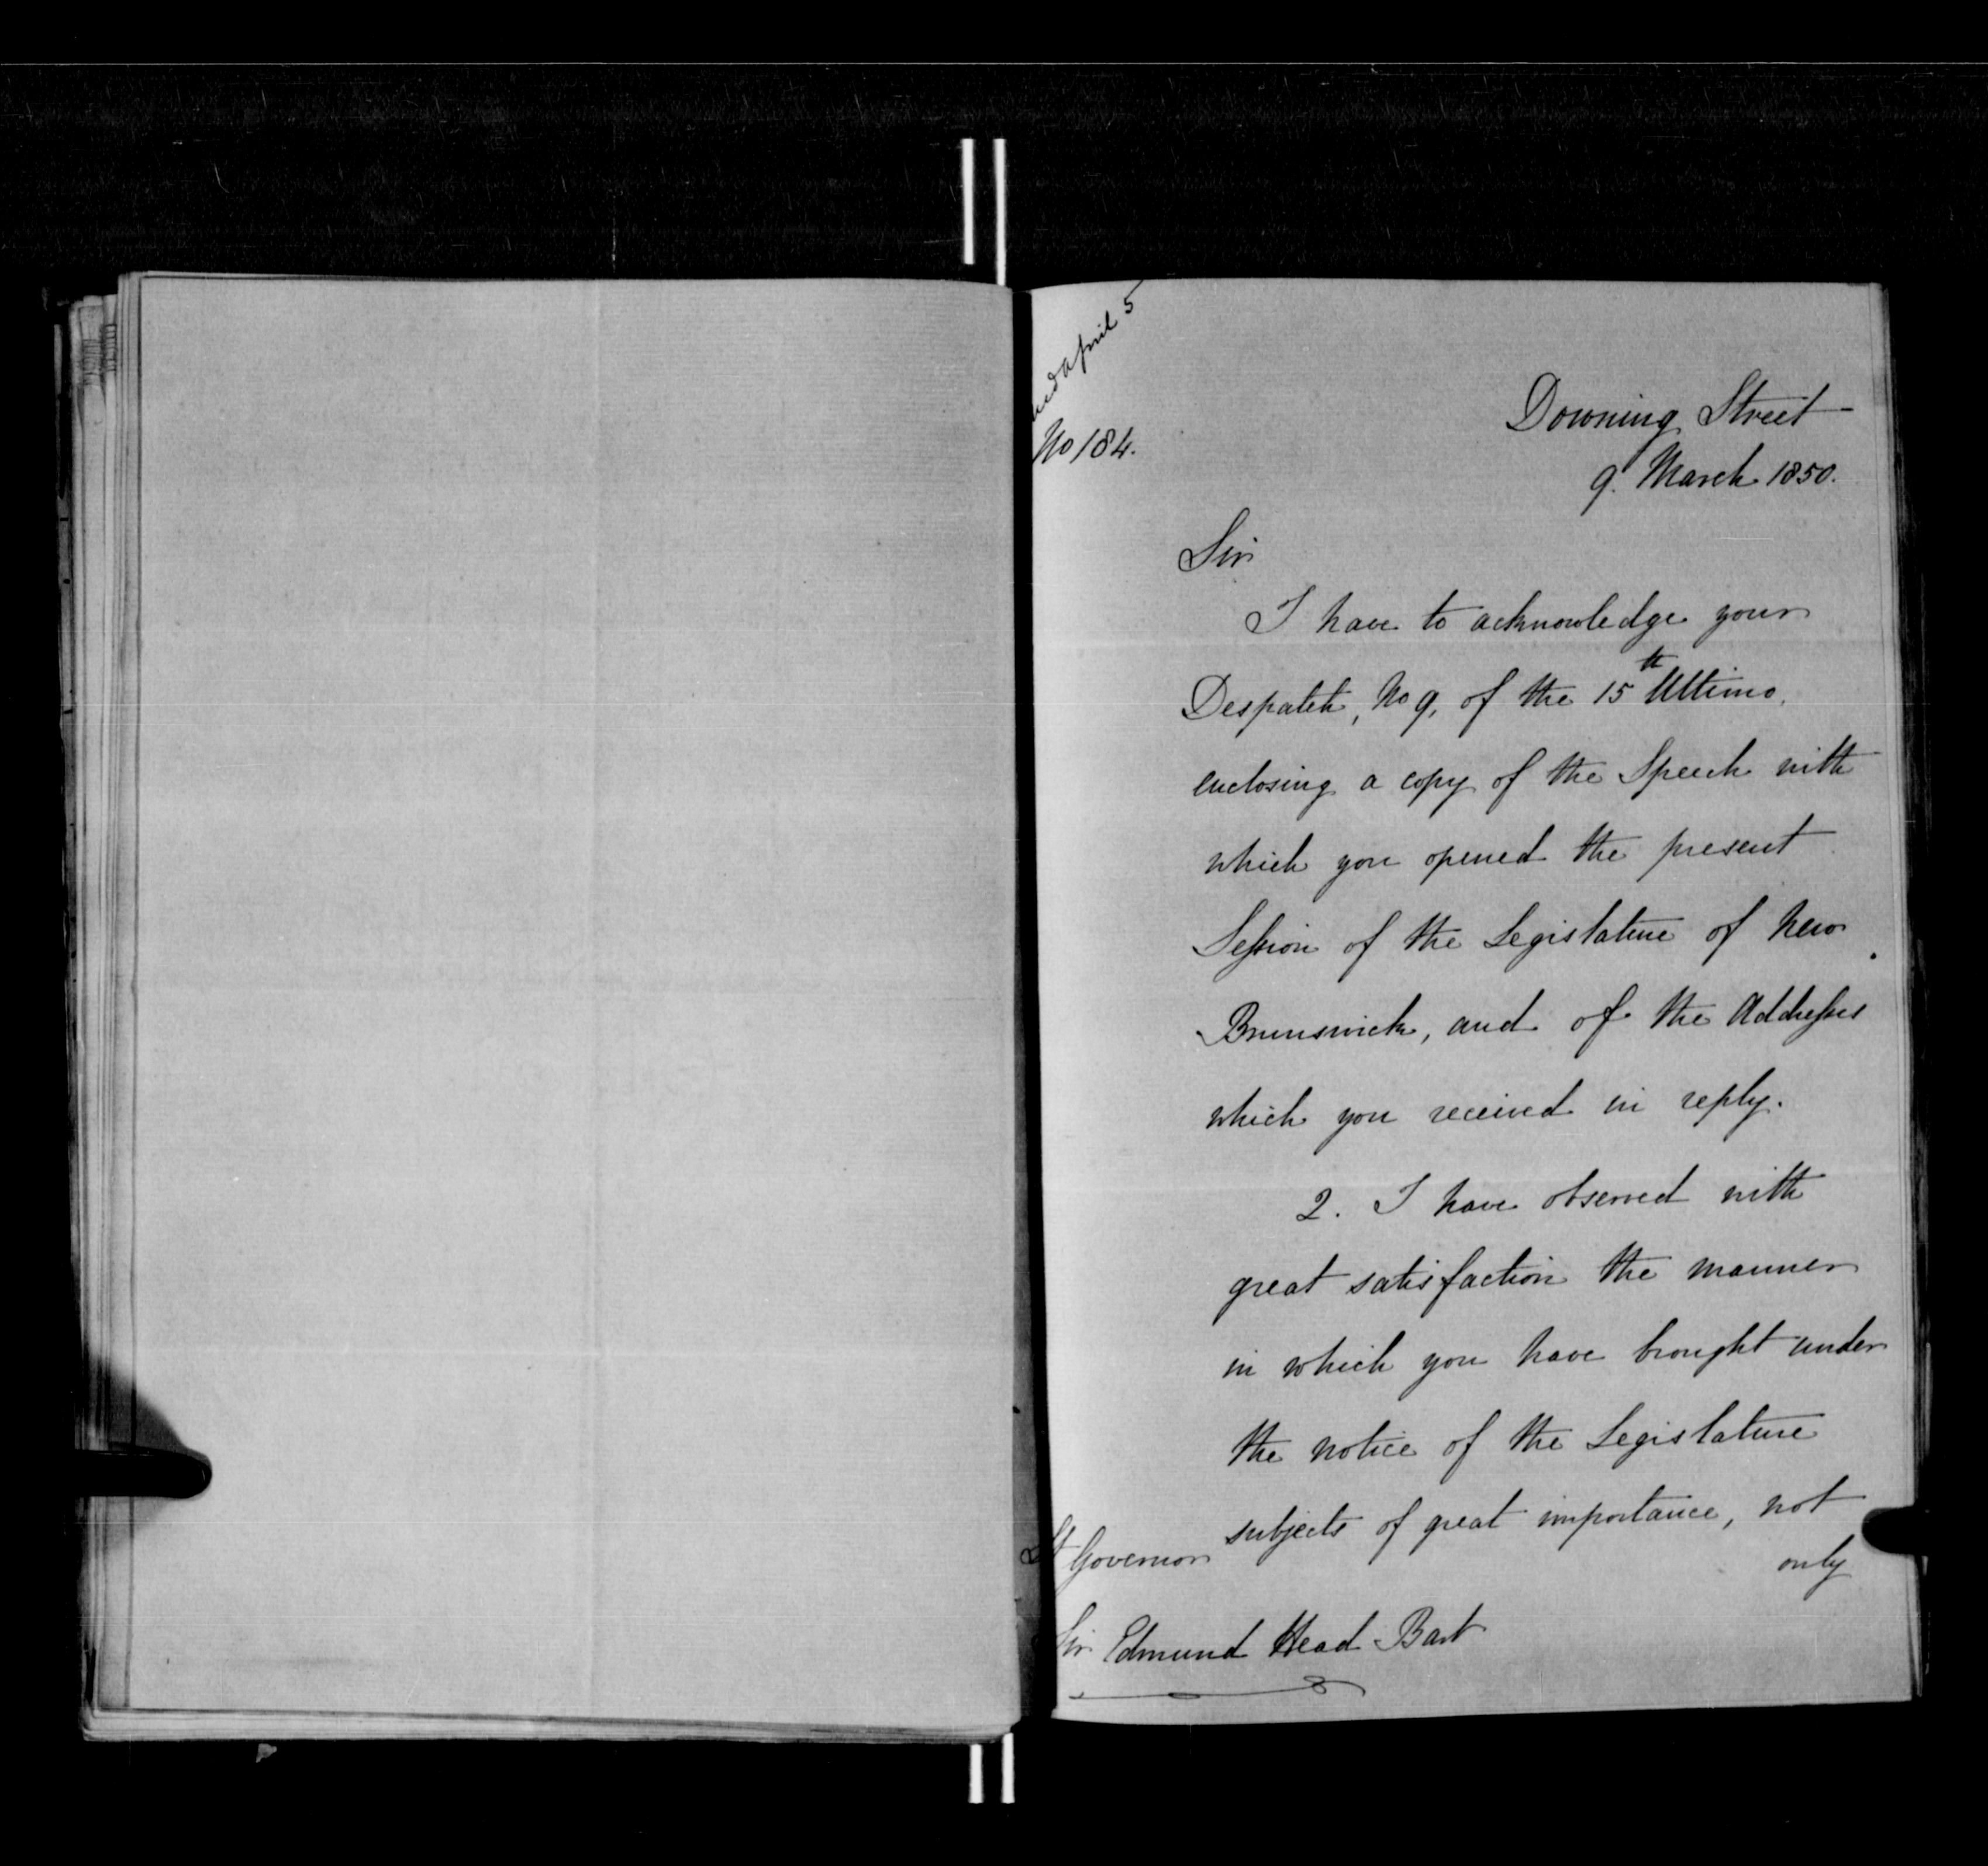 April 5
No 184.
Downing Street
9. March 1850.
Sir
I have to acknowledge your
Despatch, No 9, of the 15th Ultimo,
enclosing a copy of the Speech with
which you opened the present
Session of the Legislature of New
Brunswick, and of the Addresses
which you received in reply.
2. I have observed with
great satisfaction the manner
in which you have brought under
the notice of the Legislature
subjects of great importance, not
only
Lt Governor
Sir Edmund Head Bart